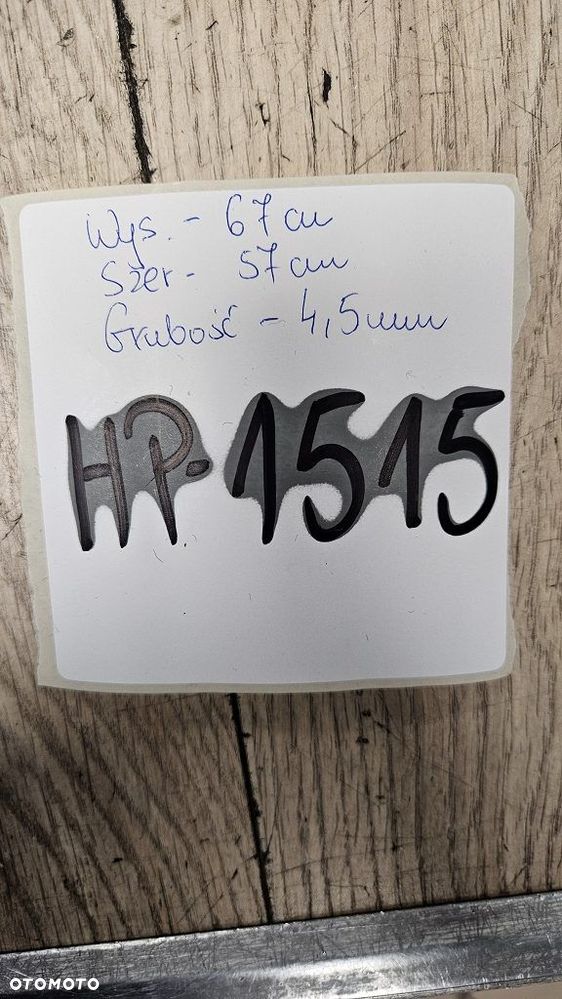 Wys. - 67 cm
Szer - 57 cm
Grubość - 4,5 mm
HP-1515
OTOMOTO